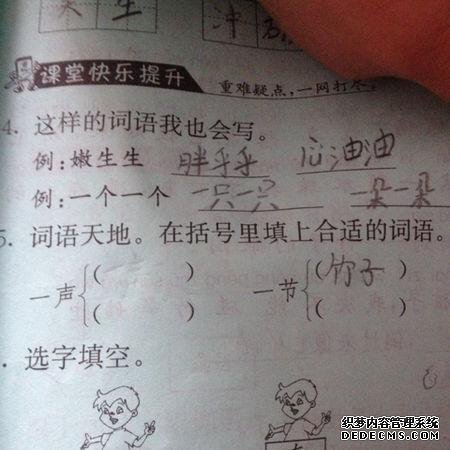 课堂快乐提升
重难疑点，一网打尽
4. 这样的词语我也会写。
例：嫩生生 胖乎乎 油油
例：一个一个 一只一只 一朵一朵
5. 词语天地。在括号里填上合适的词语。
一声 ( ) 一节 (竹子)
( ) ( )
. 选字填空。
织梦内容管理系统
WWW.DEDECMS.COM